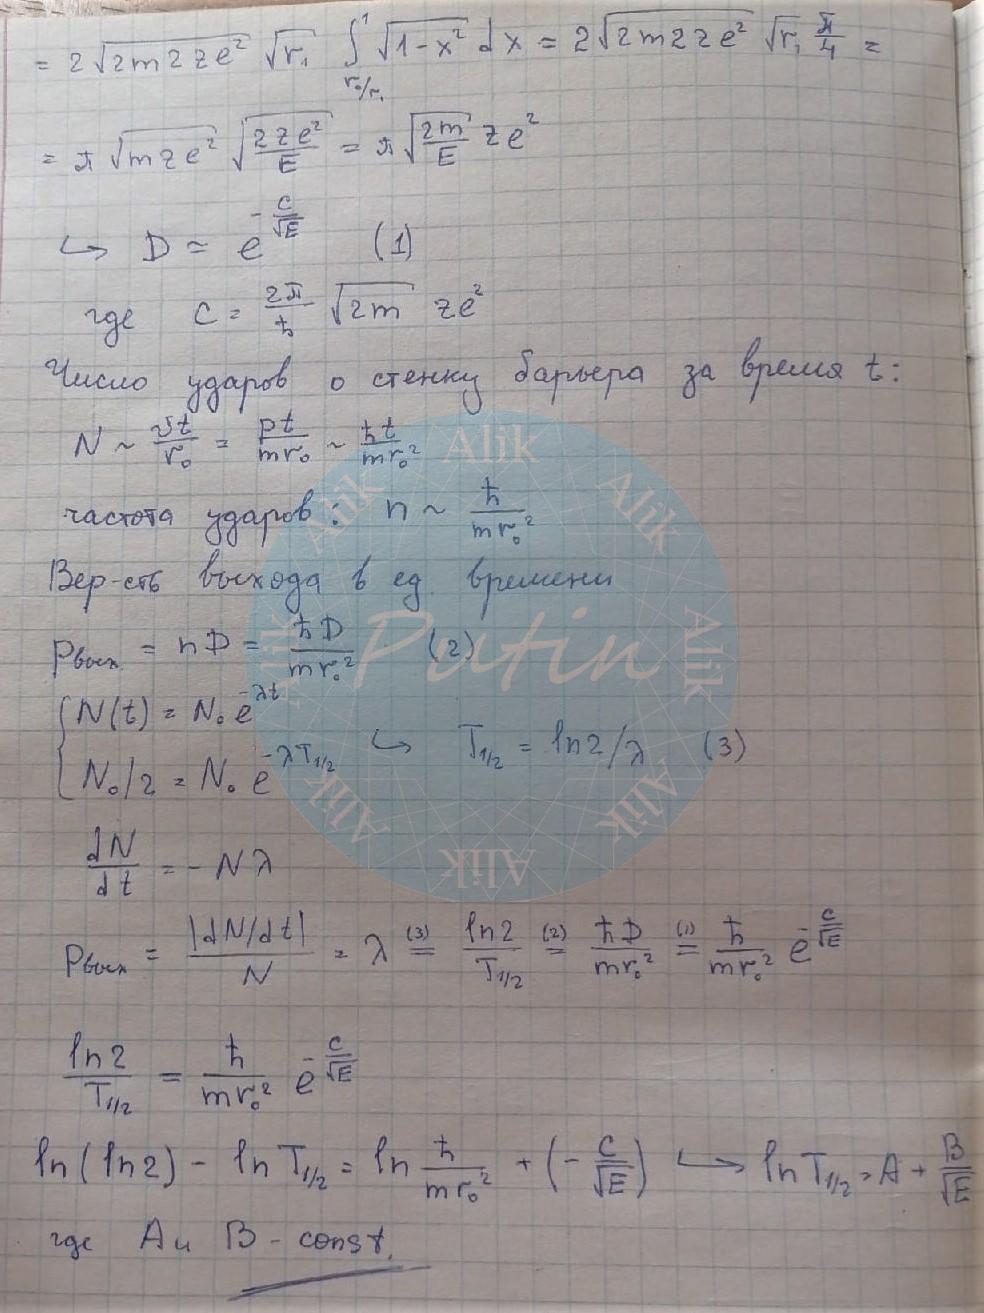 = 2√(2m2ze²) √r₁ ∫_{r₀/r₁}^{1} √(1-x²) dx = 2√(2m2ze²) √r₁ π/4 =
= π √(mze²) √(2ze²/E) = π √(2m/E) ze²
↪ D ≈ e^{-C/√E} (1)
где C = 2π/ħ √(2m) ze²
Число ударов о стенку барьера за время t:
N ~ vt/r₀ = pt/mr₀ ~ ħt/mr₀²
частота ударов: n ~ ħ/mr₀²
Вер-сть выхода в ед. времени
Pвых = nD = ħD/mr₀² (2)
{ N(t) = N₀ e^{-λt}
N₀/2 = N₀ e^{-λT₁/₂} ↪ T₁/₂ = ln2/λ (3)
dN/dt = - Nλ
Pвых = |dN/dt|/N = λ (3)= ln2/T₁/₂ (2)= ħD/mr₀² (1)= ħ/mr₀² e^{-C/√E}
ln2/T₁/₂ = ħ/mr₀² e^{-C/√E}
ln(ln2) - lnT₁/₂ = ln ħ/mr₀² + (- C/√E) ↪ lnT₁/₂ = A + B/√E
где A и B - const.
Alik Alik Alik Alik Alik Alik Alik Alik
Putin